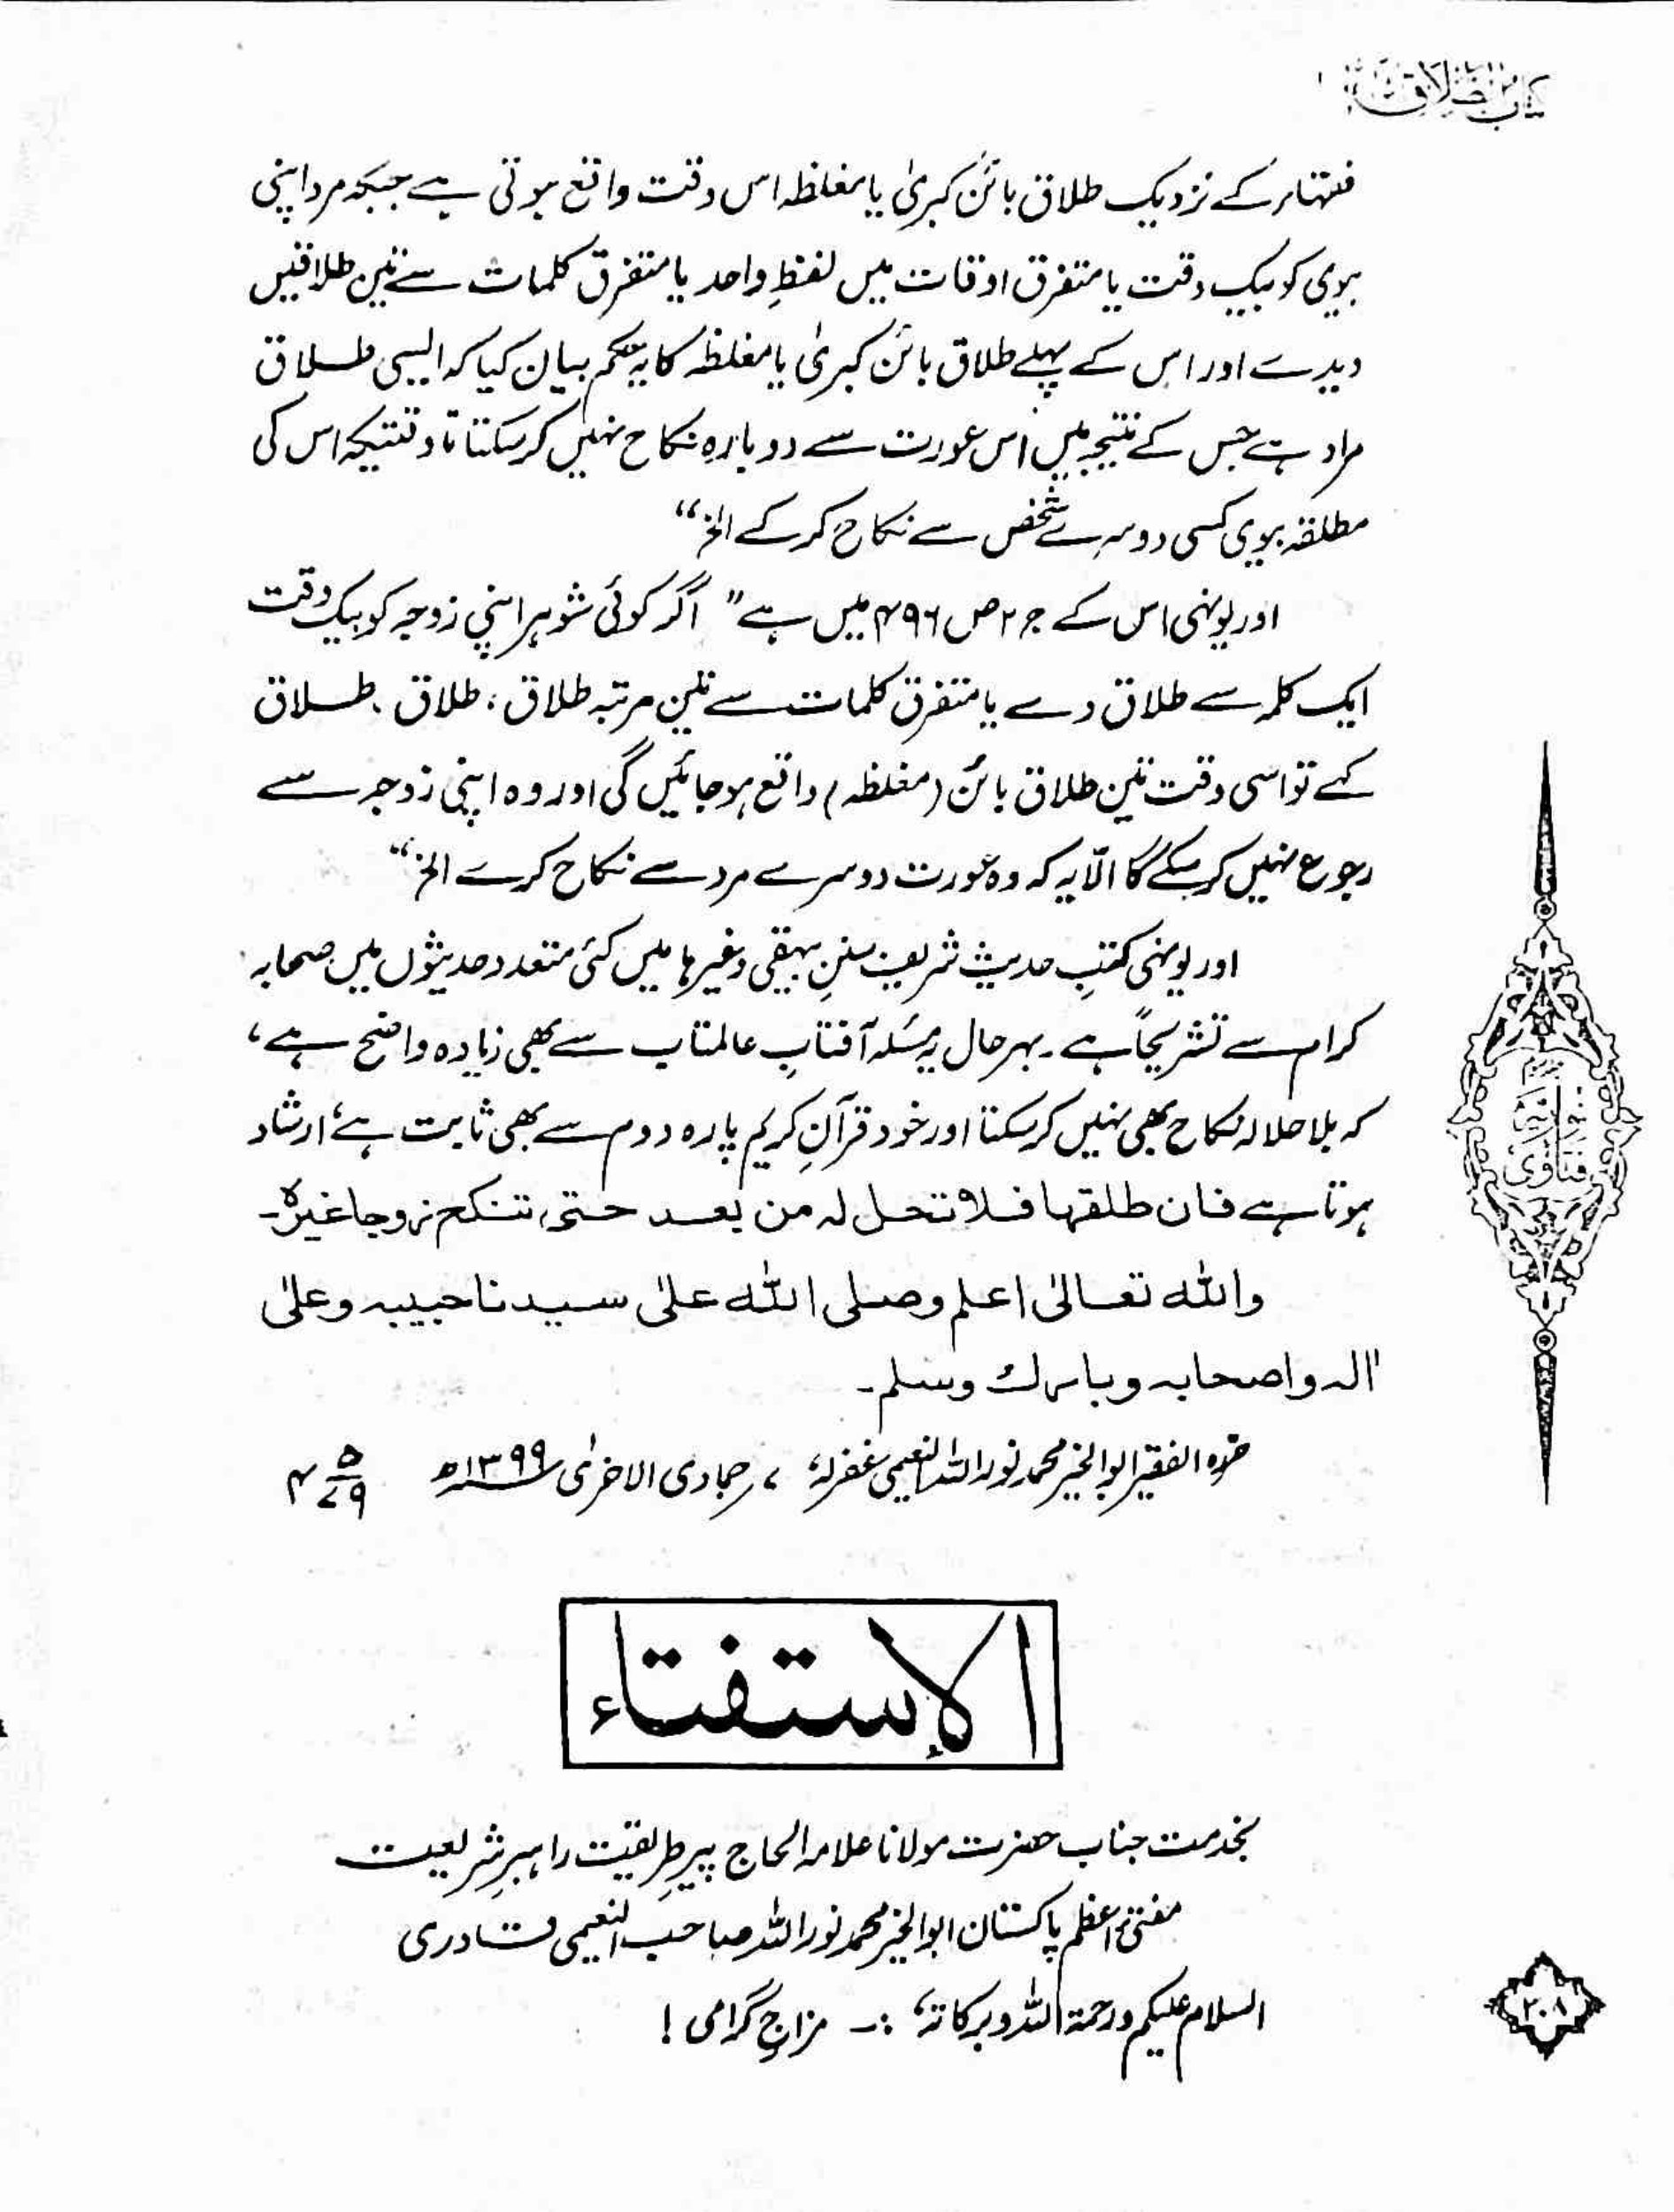 کتاب الطلاق
فقہاء کے نزدیک طلاق بائن کبریٰ یا مغلظہ اس وقت واقع ہوتی ہے جبکہ مرد اپنی
بیوی کو بیک وقت یا متفرق اوقات میں لفظِ واحد یا متفرق کلمات سے تین طلاقیں
دیدے اور اس کے پہلے طلاق بائن کبریٰ یا مغلظہ کا یہ حکم بیان کیا کہ ایسی طلاق
مراد ہے جس کے نتیجہ میں اس عورت سے دوبارہ نکاح نہیں کر سکتا تا وقتیکہ اس کی
مطلقہ بیوی کسی دوسرے شخص سے نکاح کر کے الخ“
اور یونہی اس کے ج ۲ ص ۴۹۶ میں ہے ” اگر کوئی شوہر اپنی زوجہ کو بیک وقت
ایک کلمہ سے طلاق دے یا متفرق کلمات سے تین مرتبہ طلاق، طلاق، طلاق
کہے تو اسی وقت تین طلاق بائن (مغلظہ) واقع ہو جائیں گی اور وہ اپنی زوجہ سے
رجوع نہیں کر سکے گا الّا یہ کہ وہ عورت دوسرے مرد سے نکاح کرے الخ“
اور یونہی کتبِ حدیث شریف سننِ بیہقی وغیرہا میں کئی متعدد حدیثوں میں صحابہ
کرام سے تشریحاً ہے۔ بہرحال یہ مسئلہ آفتابِ عالمتاب سے بھی زیادہ واضح ہے،
کہ بلا حلالہ نکاح بھی نہیں کر سکتا اور خود قرآنِ کریم پارہ دوم سے بھی ثابت ہے، ارشاد
ہوتا ہے فان طلقہا فلا تحل لہ من بعد حتی تنکح زوجا غیرہ۔
واللہ تعالیٰ اعلم وصلی اللہ علیٰ سیدنا حبیبہ وعلیٰ
اٰلہ واصحابہ وبارک وسلم۔
حررہ الفقیر ابوالخیر محمد نور اللہ النعیمی غفرلہٗ ۷ جمادی الاخریٰ ۱۳۹۹ھ ۴ ۵ ۷۹
الاستفتاء
بخدمت جناب حضرت مولانا علامہ الحاج پیرِ طریقت راہبرِ شریعت
مفتیٔ اعظم پاکستان ابوالخیر محمد نور اللہ صاحب النعیمی قادری
السلام علیکم ورحمۃ اللہ وبرکاتہٗ :۔ مزاجِ گرامی !
فتاویٰ نوریہ
۲۰۸